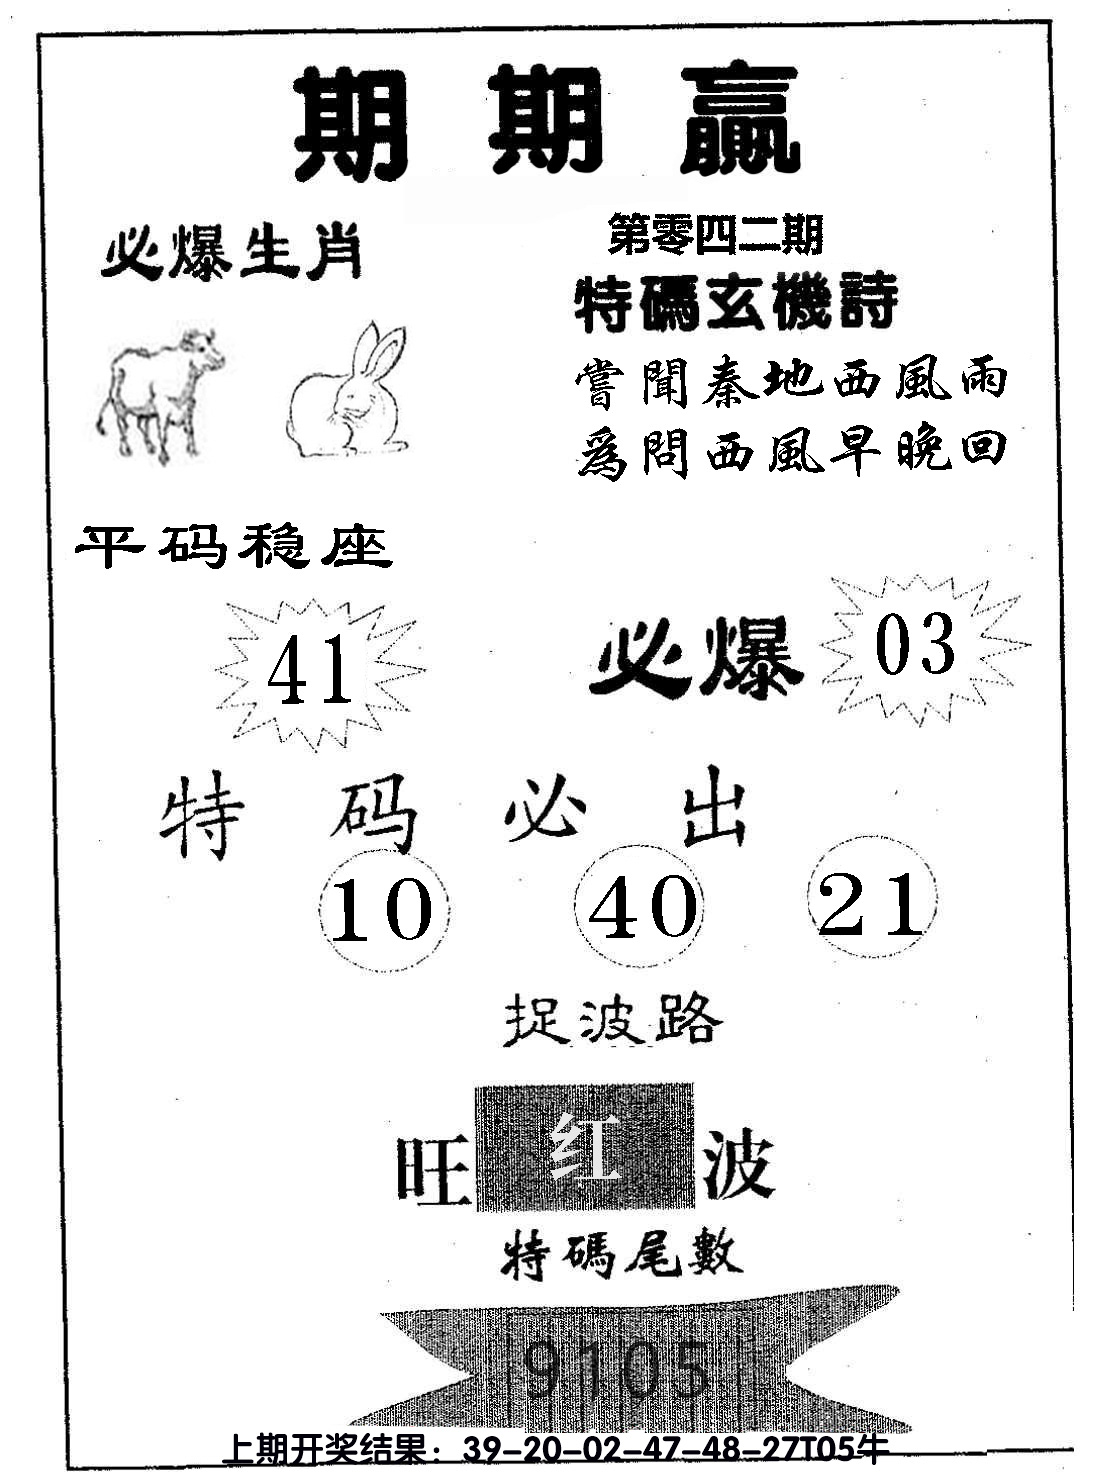 期期贏
必爆生肖
第零四二期
特碼玄機詩
嘗聞秦地西風雨
爲問西風早晚回
平码稳座
41
必爆 03
特码必出
10 40 21
捉波路
旺 红 波
特碼尾數
9105
上期开奖结果：39-20-02-47-48-27T05牛